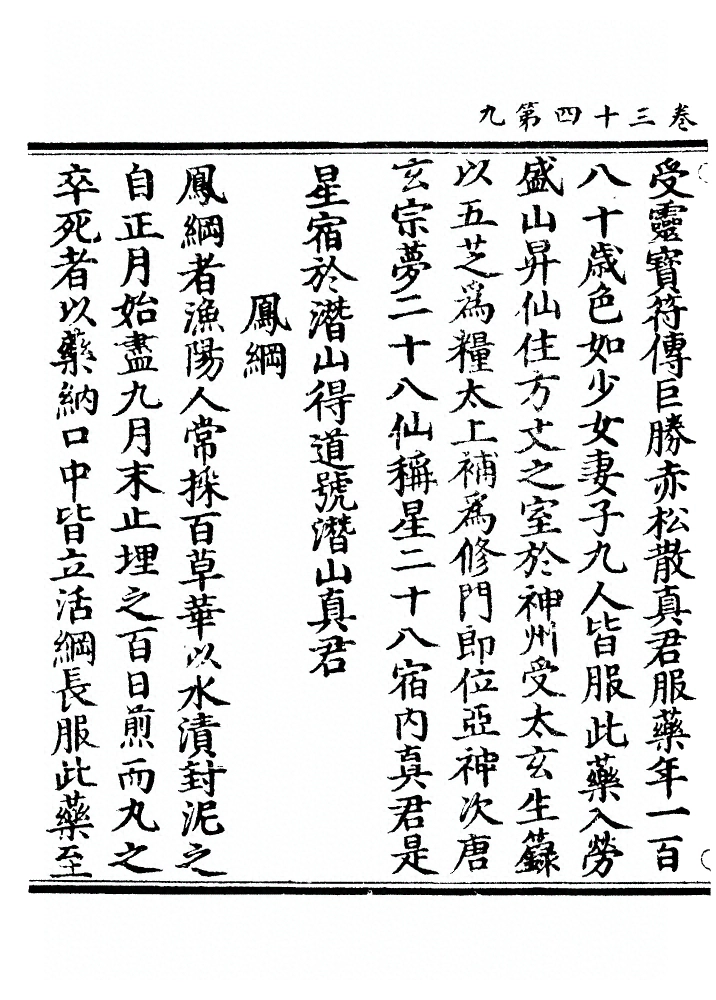 卷三十四第九
受靈寶符傳巨勝赤松散真君服藥年一百
八十歲色如少女妻子九人皆服此藥入勞
盛山昇仙住方丈之室於神州受太玄生籙
以五芝爲糧太上補爲修門即位亞神次唐
玄宗夢二十八仙稱星二十八宿內真君是
星宿於潛山得道號潛山真君
鳳綱
鳳綱者漁陽人常採百草華以水漬封泥之
自正月始盡九月末止埋之百日煎而丸之
卒死者以藥納口中皆立活綱長服此藥至